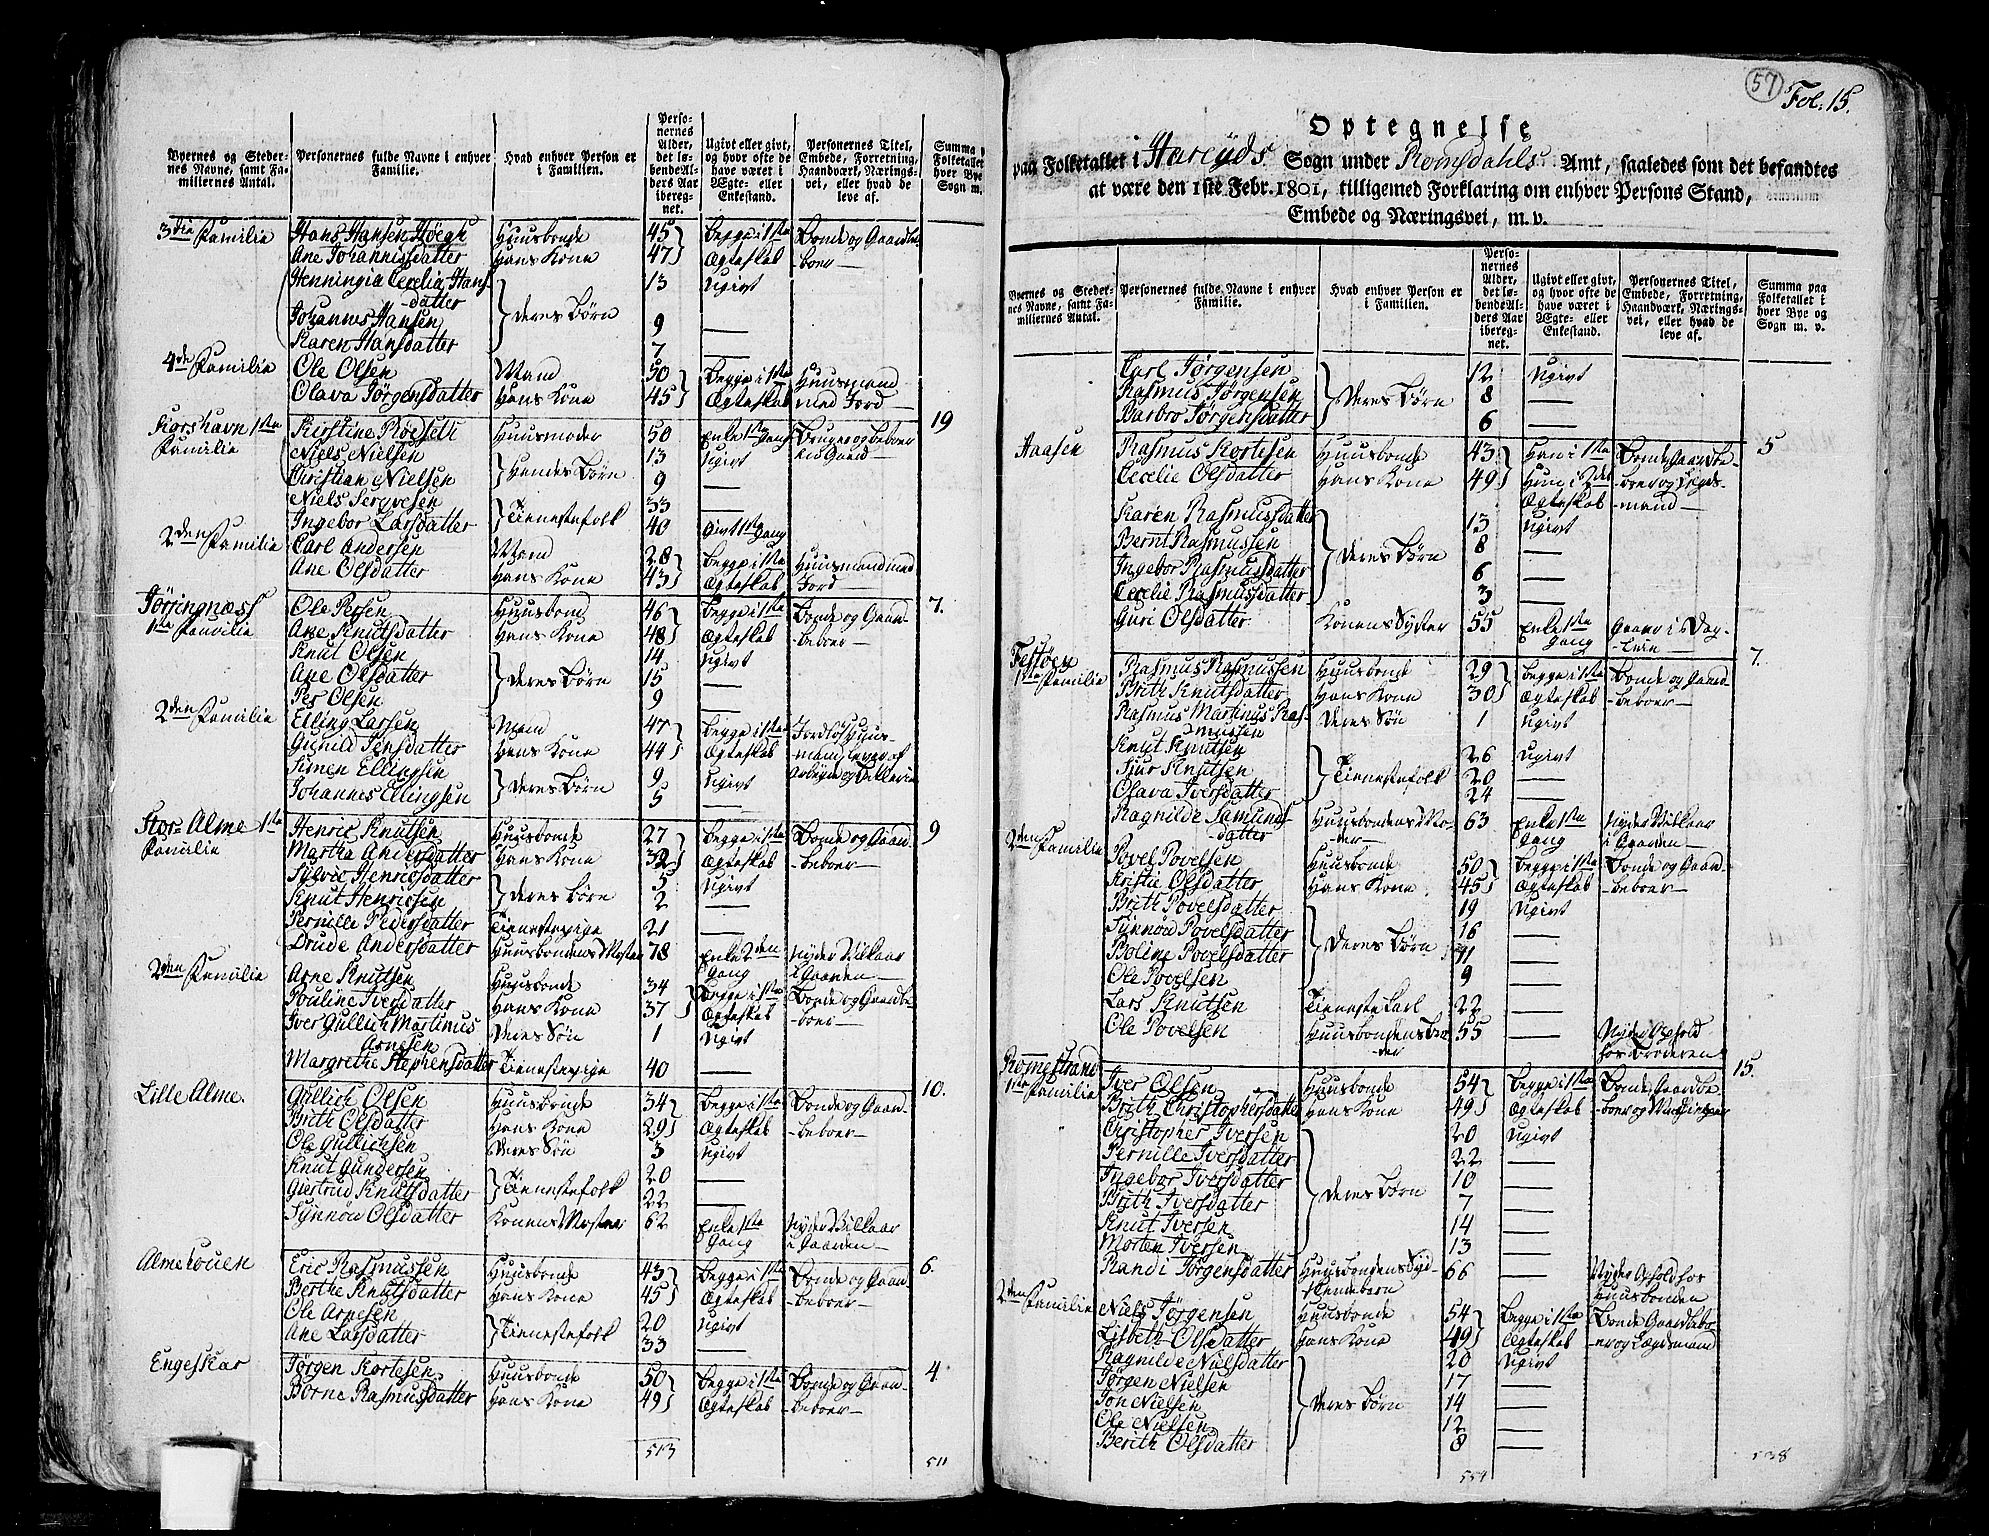 Byernes og Stedernes Navne, samt Familiernes Antal. | Personernes fulde Navne i enhver Familie. | Hvad enhver Person er i Familien. | Personernes Alder, det løbende Alders Aar iberegnet. | Ugivt eller givt, og hvor ofte de have været i Ægte- eller Enkestand. | Personernes Titel, Embede, Forretning, Haandværk, Næringsvei, eller hvad de leve af. | Summa paa Folketallet i hver Bye og Sogn m.
3die Familie | Hans Hansen Høegh | Huusbonde | 45 | begge i 1ste | Bonde og Gaardbe-
Ane Johannisdatter | Hans Kone | 47 | Ægteskab | boer
Henningia Cecelia Hans-
datter | 13 | Ugivt
Johannes Hansen | Deres Børn | 9 | —
Karen Hansdatter | 7 | —
4de Familie | Ole Olsen | Mand | 50 | begge i 1ste | Huusmand
Olava Jørgensdatter | Hans Kone | 45 | Ægteskab | med Jord
Korshavn 1ste | Kirstine Røeseth | Huusmoder | 50 | Enke 1ste Gang | Bruger og beboer | 19
Familie | Niels Nielsen | 13 | Ugivt | en Gaard
Christian Nielsen | Hendes Børn | 9 | —
Niels Servesen | 33 | —
Ingebor Larsdatter | Tienestefolk | 40 | Givt 1ste Gang
2den Familie | Carl Andersen | Mand | 28 | begge i 1ste | Huusmand med
Ane Olsdatter | Hans Kone | 43 | Ægteskab | Jord
Jørringnæss | Ole Persen | Huusbond | 46 | begge i 1ste | Bonde og Gaard- | 7.
1ste Familie | Ane Knutsdatter | Hans Kone | 48 | Ægteskab | beboer
Knut Olsen | 14 | Ugivt
Ane Olsdatter | Deres Børn | 15 | —
Per Olsen | 9 | —
2den Familie | Elling Larsen | Mand | 47 | begge i 1ste | Jordløs Huus-
Gunild Jensdatter | Hans Kone | 44 | Ægteskab | mand lever af
Simen Ellingsen | 9 | Ugivt | Arbeyde og Tellerie
Johannes Ellingsen | Deres Børn | 5 | —
Stor-Alme 1ste | Henric Knutsen | Huusbonde | 27 | begge i 1ste | Bonde og Gaard | 9
Familie | Martha Andersdatter | Hans Kone | 32 | Ægteskab | beboer
Sylvie Henricsdatter | 5 | Ugivt
Knut Henricsen | Deres Børn | 2 | —
Pernille Pedersdatter | Tienestepige | 21 | —
Drude Andersdatter | Huusbondens Moster | 78 | Enke 2den | Nyder Vilkaar
2den Familie | Arne Knutsen | Huusbonde | 34 | Gang | i Gaarden
Pouline Iversdatter | Hans Kone | 37 | begge i 1ste | Bonde og Gaardbe-
Iver Gullich Martinus | Deres Søn | 1 | Ægteskab | boer
Arnesen | Ugivt
Margrethe Stephensdatter | Tienestepige | 40 | —
Lille Alme. | Gullich Olsen | Huusbonde | 34 | begge i 1ste | Bonde og Gaard- | 10.
Brith Olsdatter | Hans Kone | 29 | Ægteskab | beboer
Ole Gullichsen | Deres Søn | 3 | Ugivt
Knut Gundersen | 20 | —
Giertrud Knutsdatter | Tienestefolk | 22 | —
Synnøv Olsdatter | Konens Moster | 62 | Enke 1ste Gang | Nyder Vilkaar i Gaarden
Almekouen | Eric Rasmussen | Huusbonde | 43 | begge i 1ste | Bonde og Gaard | 6.
Berthe Knutsdatter | Hans Kone | 45 | Ægteskab | beboer
Ole Arnesen | 20 | Ugivt
Ane Larsdatter | Tienestefolk | 33 | —
Engeskar | Jørgen Kortesen | Huusbonde | 50 | begge i 1ste | Bonde og Gaard- | 4
Borne Rasmusdatter | Hans Kone | 49 | Ægteskab | beboer
513 | 511
57 Fol: 15.
Optegnelse
paa Folketallet i Hareyds Sogn under Romsdahls Amt, saaledes som det befandtes
at være den 1ste Febr. 1801, tilligemed Forklaring om enhver Persons Stand,
Embede og Næringsvei, m. v.
Byernes og Stedernes Navne, samt Familiernes Antal. | Personernes fulde Navne i enhver Familie. | Hvad enhver Person er i Familien. | Personernes Alder, det løbende Alders Aar iberegnet. | Ugivt eller givt, og hvor ofte de have været i Ægte- eller Enkestand. | Personernes Titel, Embede, Forretning, Haandværk, Næringsvei, eller hvad de leve af. | Summa paa Folketallet i hver Bye og Sogn m. v.
Carl Jørgensen | 12 | Ugivt
Rasmus Jørgensen | Deres Børn | 8 | —
Barbro Jørgensdatter | 6 | —
Haasen | Rasmus Kortesen | Huusbonde | 43 | Han i 1ste | Bonde Gaardbe- | 5
Cecelie Olsdatter | Hans Kone | 49 | Hun i 2det | -boer og Lægds-
Ægteskab | mand
Karen Rasmusdatter | 13 | Ugivt
Bernt Rasmussen | 8 | —
Ingebor Rasmusdatter | Deres Børn | 6 | —
Cecelie Rasmusdatter | 3 | —
Guri Olsdatter | Konens Syster | 55 | Enke 1ste Gang | Gaaer i Dag-leie
Festøen | Rasmus Rasmussen | Huusbonde | 29 | begge i 1ste | Bonde og Gaard | 7.
1ste Familie | Brith Knutsdatter | Hans Kone | 30 | Ægteskab | beboer
Rasmus Martinus Ras- | Deres Søn | 1 | Ugivt
mussen
Knut Knutsen | 26 | Ugivt
Sjur Knutsen | Tienestefolk | 20 | —
Olava Iversdatter | 24 | —
Ragnilde Samunds- | Huusbondens Mo- | 63 | Enke 1ste | Nyder Vilkaar
datter | der | Gang | i Gaarden
2den Familie | Povel Povelsen | Huusbonde | 50 | begge i 1ste | Bonde og Gaard
Kristie Olsdatter | Hans Kone | 45 | Ægteskab | -beboer
Brith Povelsdatter | 19 | Ugivt
Synnøw Povelsdatter | 16 | —
Boline Povelsdatter | Deres Børn | 11 | —
Ole Povelsen | 9 | —
Lars Knutsen | Tieneste Carl | 22 | —
Ole Povelsen | Huusbondens Bro- | 55 | Nyder Ophold
der | hos Broderen
Romestrand | Iver Olsen | Huusbonde | 54 | begge i 1ste | Bonde, Gaardbe- | 15.
1ste Familie | Brith Christophersdatter | Hans Kone | 49 | Ægteskab
Christopher Iversen | 20 | Ugivt
Pernille Iversdatter | 22 | —
Ingebor Iversdatter | 10 | —
Brith Iversdatter | Deres Børn | 7 | —
Knut Iversen | 14 | —
Morten Iversen | 13 | —
Randi Jørgensdatter | Huusbondens Syd- | 66 | — | Nyder Ophold hos
skendebarn | Huusbonden
2den Familie | Niels Jørgensen | Huusbonde | 54 | begge i 1ste | Bonde Gaardbebo-
Lisbeth Olsdatter | Hans Kone | 49 | Ægteskab | er og Lægdsmand
Ragnilde Nielsdatter | 20 | Ugivt
Jørgen Nielsen | 17 | —
Jon Nielsen | Deres Børn | 14 | —
Ole Nielsen | 12 | —
Berith Olsdatter | 8 | —
554 | 538